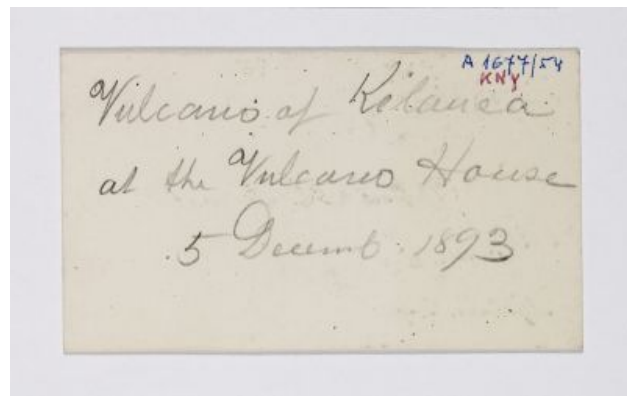 A 1677/54
KNY
Vulcano of Kilauea
at the Vulcano House
5 Decemb. 1893